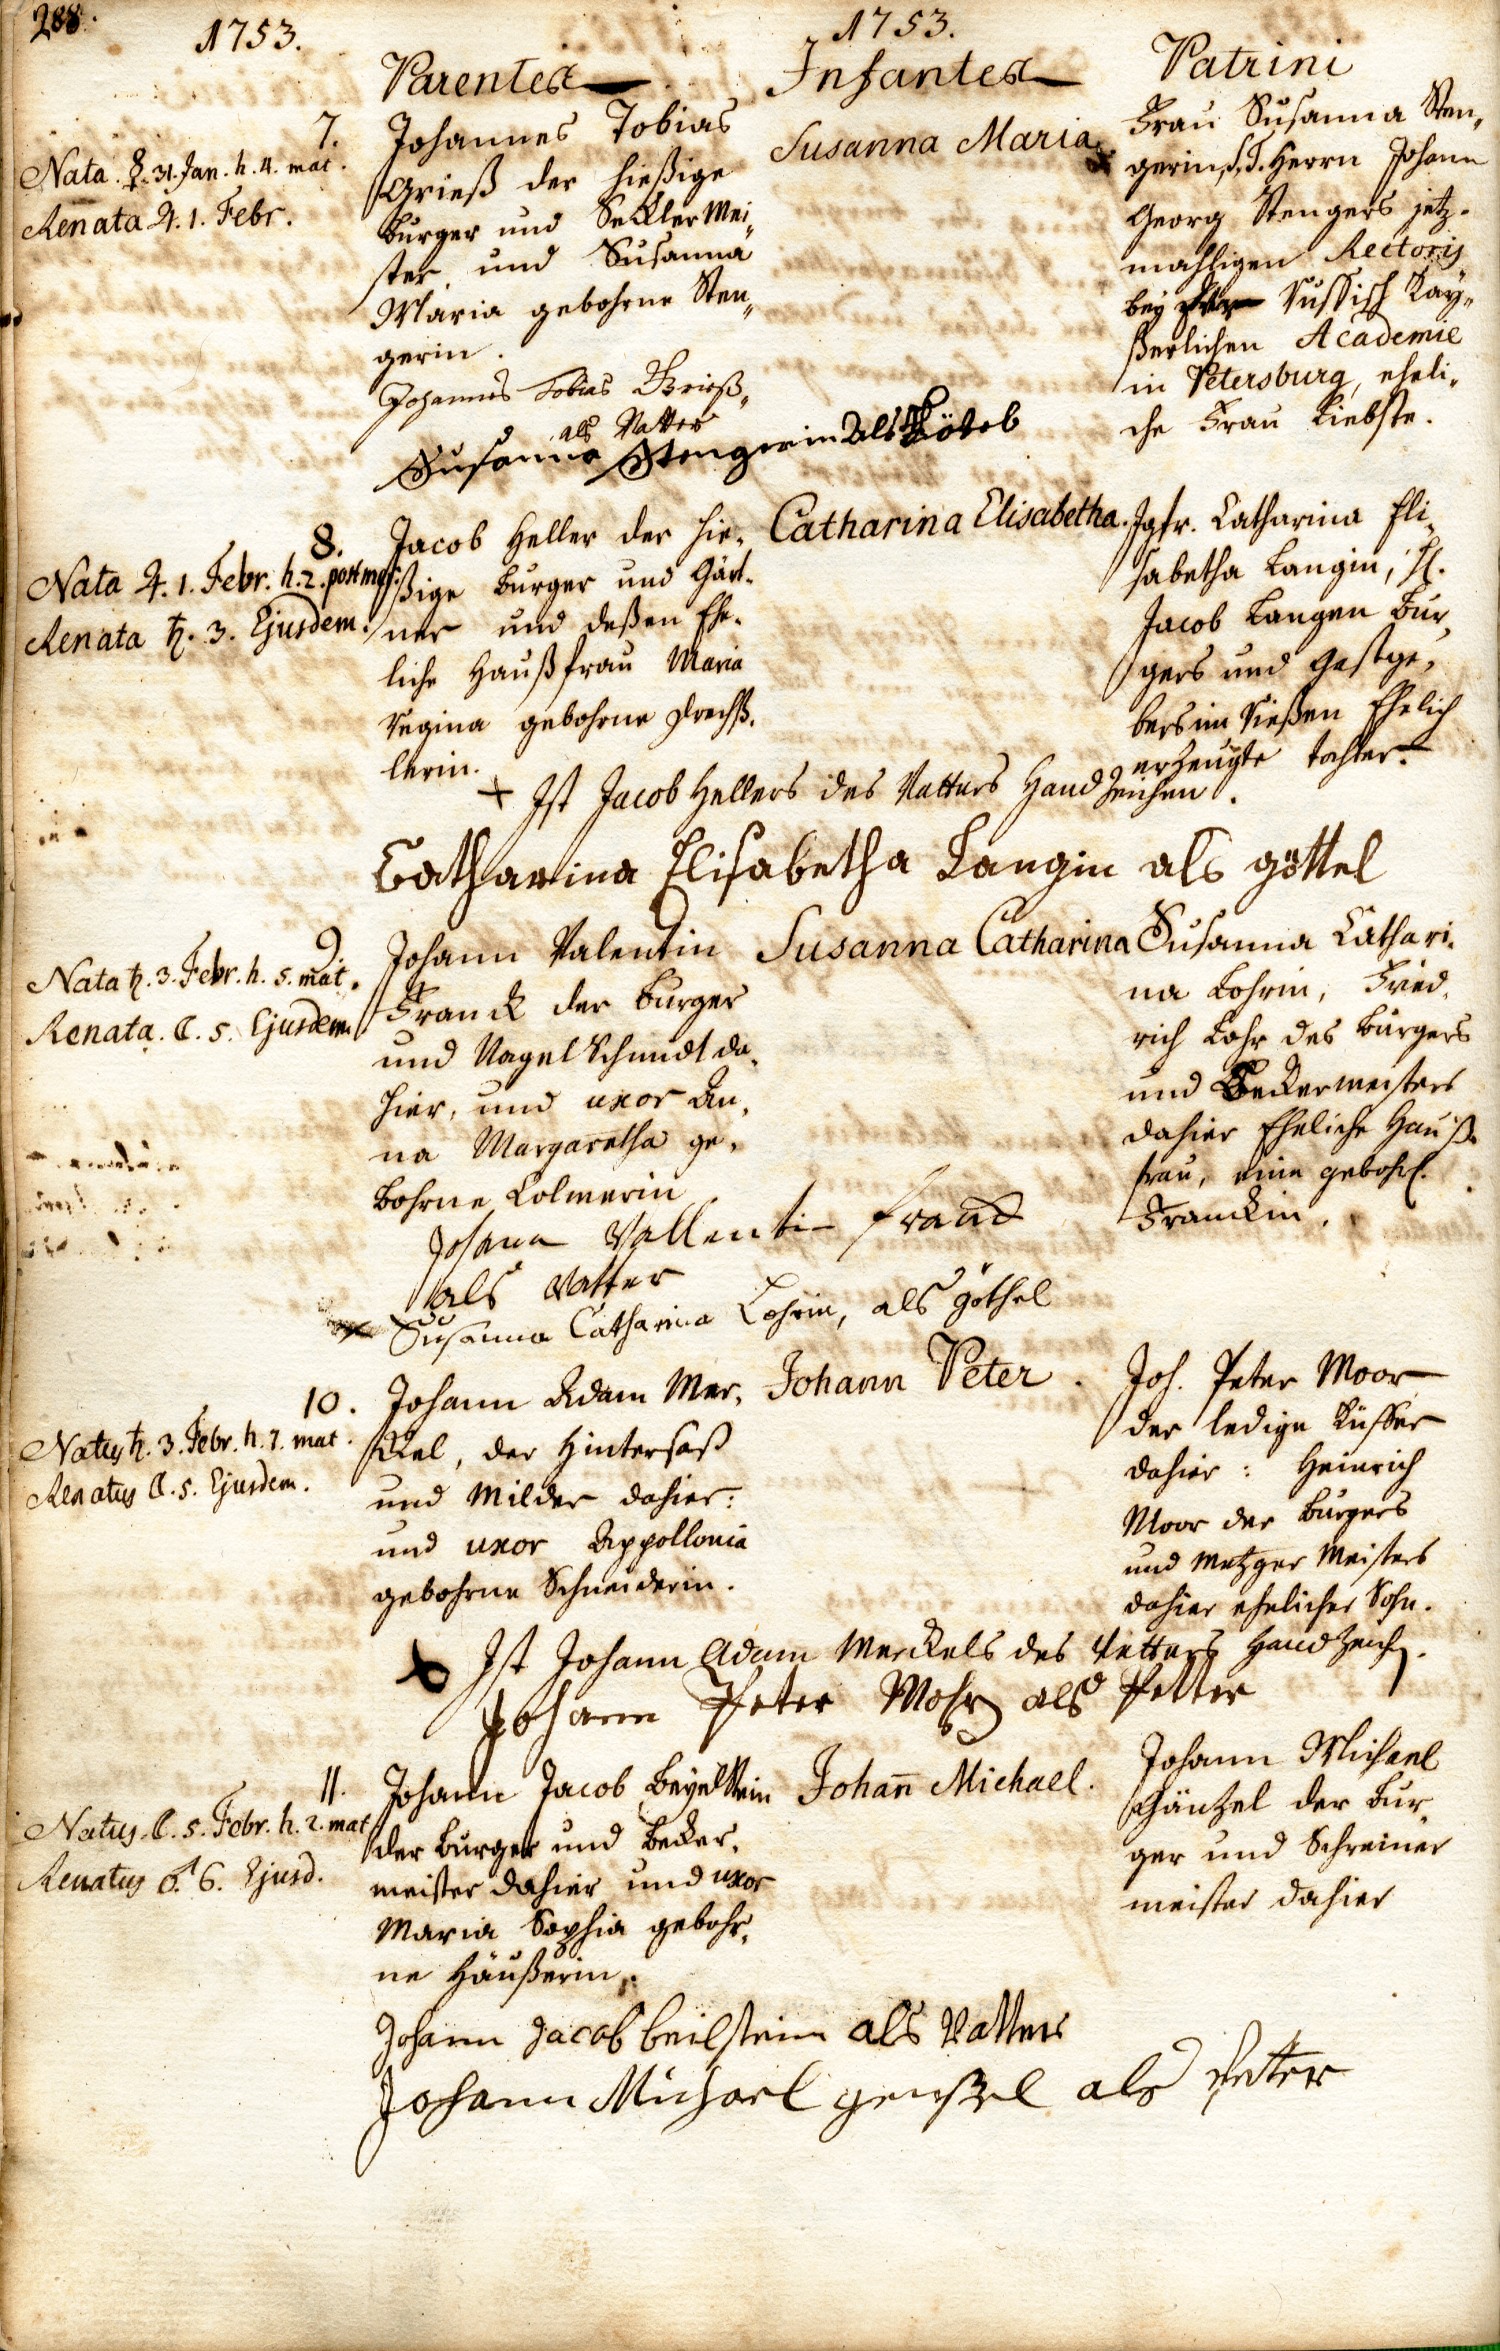 288.
1753.
1753.
Parentes
Infantes
Patrini
7.
Nata. ☿. 31. Jan. h. 4. mat.
Renata ♃. 1. Febr.
Johannes Tobias
Grieß der hießige
burger und Seckler Mei„
ster, und Susanna
Maria gebohrne Sten„
gerin.
Susanna Maria
Frau Susanna Sten„
gerin, S. T. Herrn Johann
Georg Stengers jetz-
mahligen Rectoris
bey der Russisch Kay„
ßerlichen Academie
in Petersburg, eheli„
che Frau Liebste.
Johannes Tobias Grieß„
als Vatter
Susanna Stengerin als
8.
Nata ♃. 1. Febr. h. 2. post mer.
Renata ♄. 3. Ejusdem.
Jacob Heller der hie-
ßige burger und Gärt-
ner und deßen Ehe-
liche Haußfrau Maria
Regina gebohrne Drechß-
lerin.
Catharina Elisabetha.
Jgfr. Catharina Eli-
sabetha Langin,
Jacob Langen bur,
gers und Gastge,
bers im Rießen Ehelich
erzeugte tochter.
+ Ist Jacob Hellers des Vatters Handzeichen.
Catharina Elisabetha Langin als göttel
9.
Nata ♄. 3. Febr. h. 5. mat.
Renata. ☾. 5. Ejusdem
Johann Valentin
Franck der burger
und Nagel Schmidt da,
hier, und uxor An,
na Margaretha ge,
bohrne Colmerin.
Susanna Catharina
Susanna Cathari-
na Lohrin, Fried,
rich Lohr des burgers
und Beckermeisters
dahier Eheliche Hauß-
frau, eine gebohr.
Franckin.
Johann Vallentin franck
als Vatter
Susanna Catharina Lohrin, als göthel
10.
Natus ♄. 3. Febr. h. 7. mat.
Renatus ☾. 5. Ejusdem.
Johann Adam Mer,
ckel, der Hintersaß
und Milder dahier:
und uxor Appollonia
gebohrne Schneiderin.
Johann Peter.
Joh. Peter Moor
der ledige Küffer
dahier: Heinrich
Moor der burgers
und Metzger Meisters
dahier ehelicher Sohn.
Ist Johann Adam Merckels des Vatters Handzeich.
Johann Peter Mohr als Petter
11.
Natus. ☾. 5. Febr. h. 2. mat
Renatus ♂. 6. Ejusd.
Johann Jacob Beyelstein
der burger und becker,
meister dahier und uxor
Maria Sophia gebohr,
ne Häußerin.
Johañ Michael.
Johann Michael
Gäntzel der bur,
ger und Schreiner
meister dahier
Johann Jacob beilstein als Vatter
Johann Michael gentzel als Petter